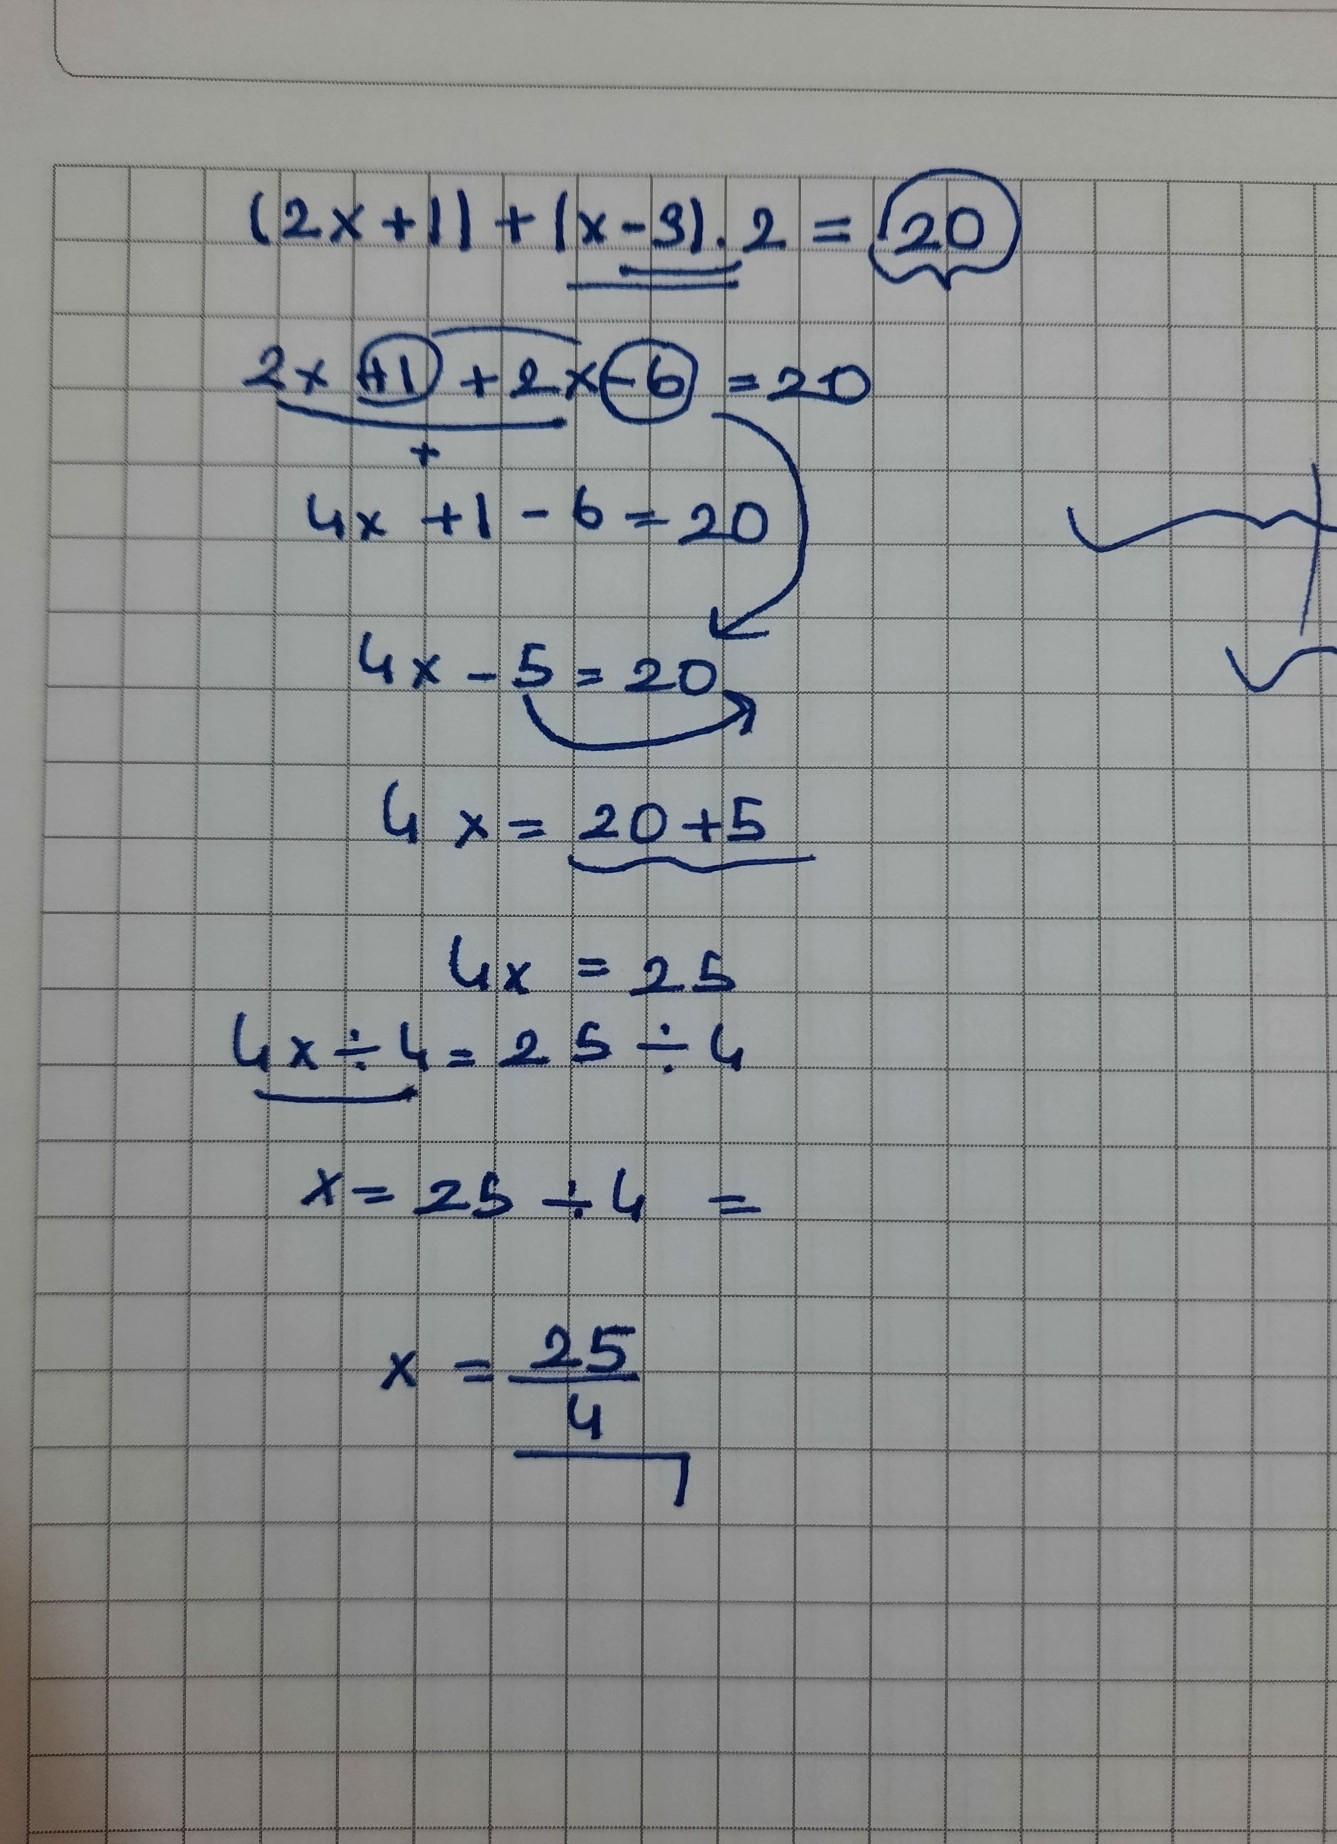 (2x+1)+(x-3).2=20
2x+1+2x-6=20
+
4x+1-6=20
4x-5=20
4x=20+5
4x=25
4x÷4=25÷4
x=25÷4=
x=25/4